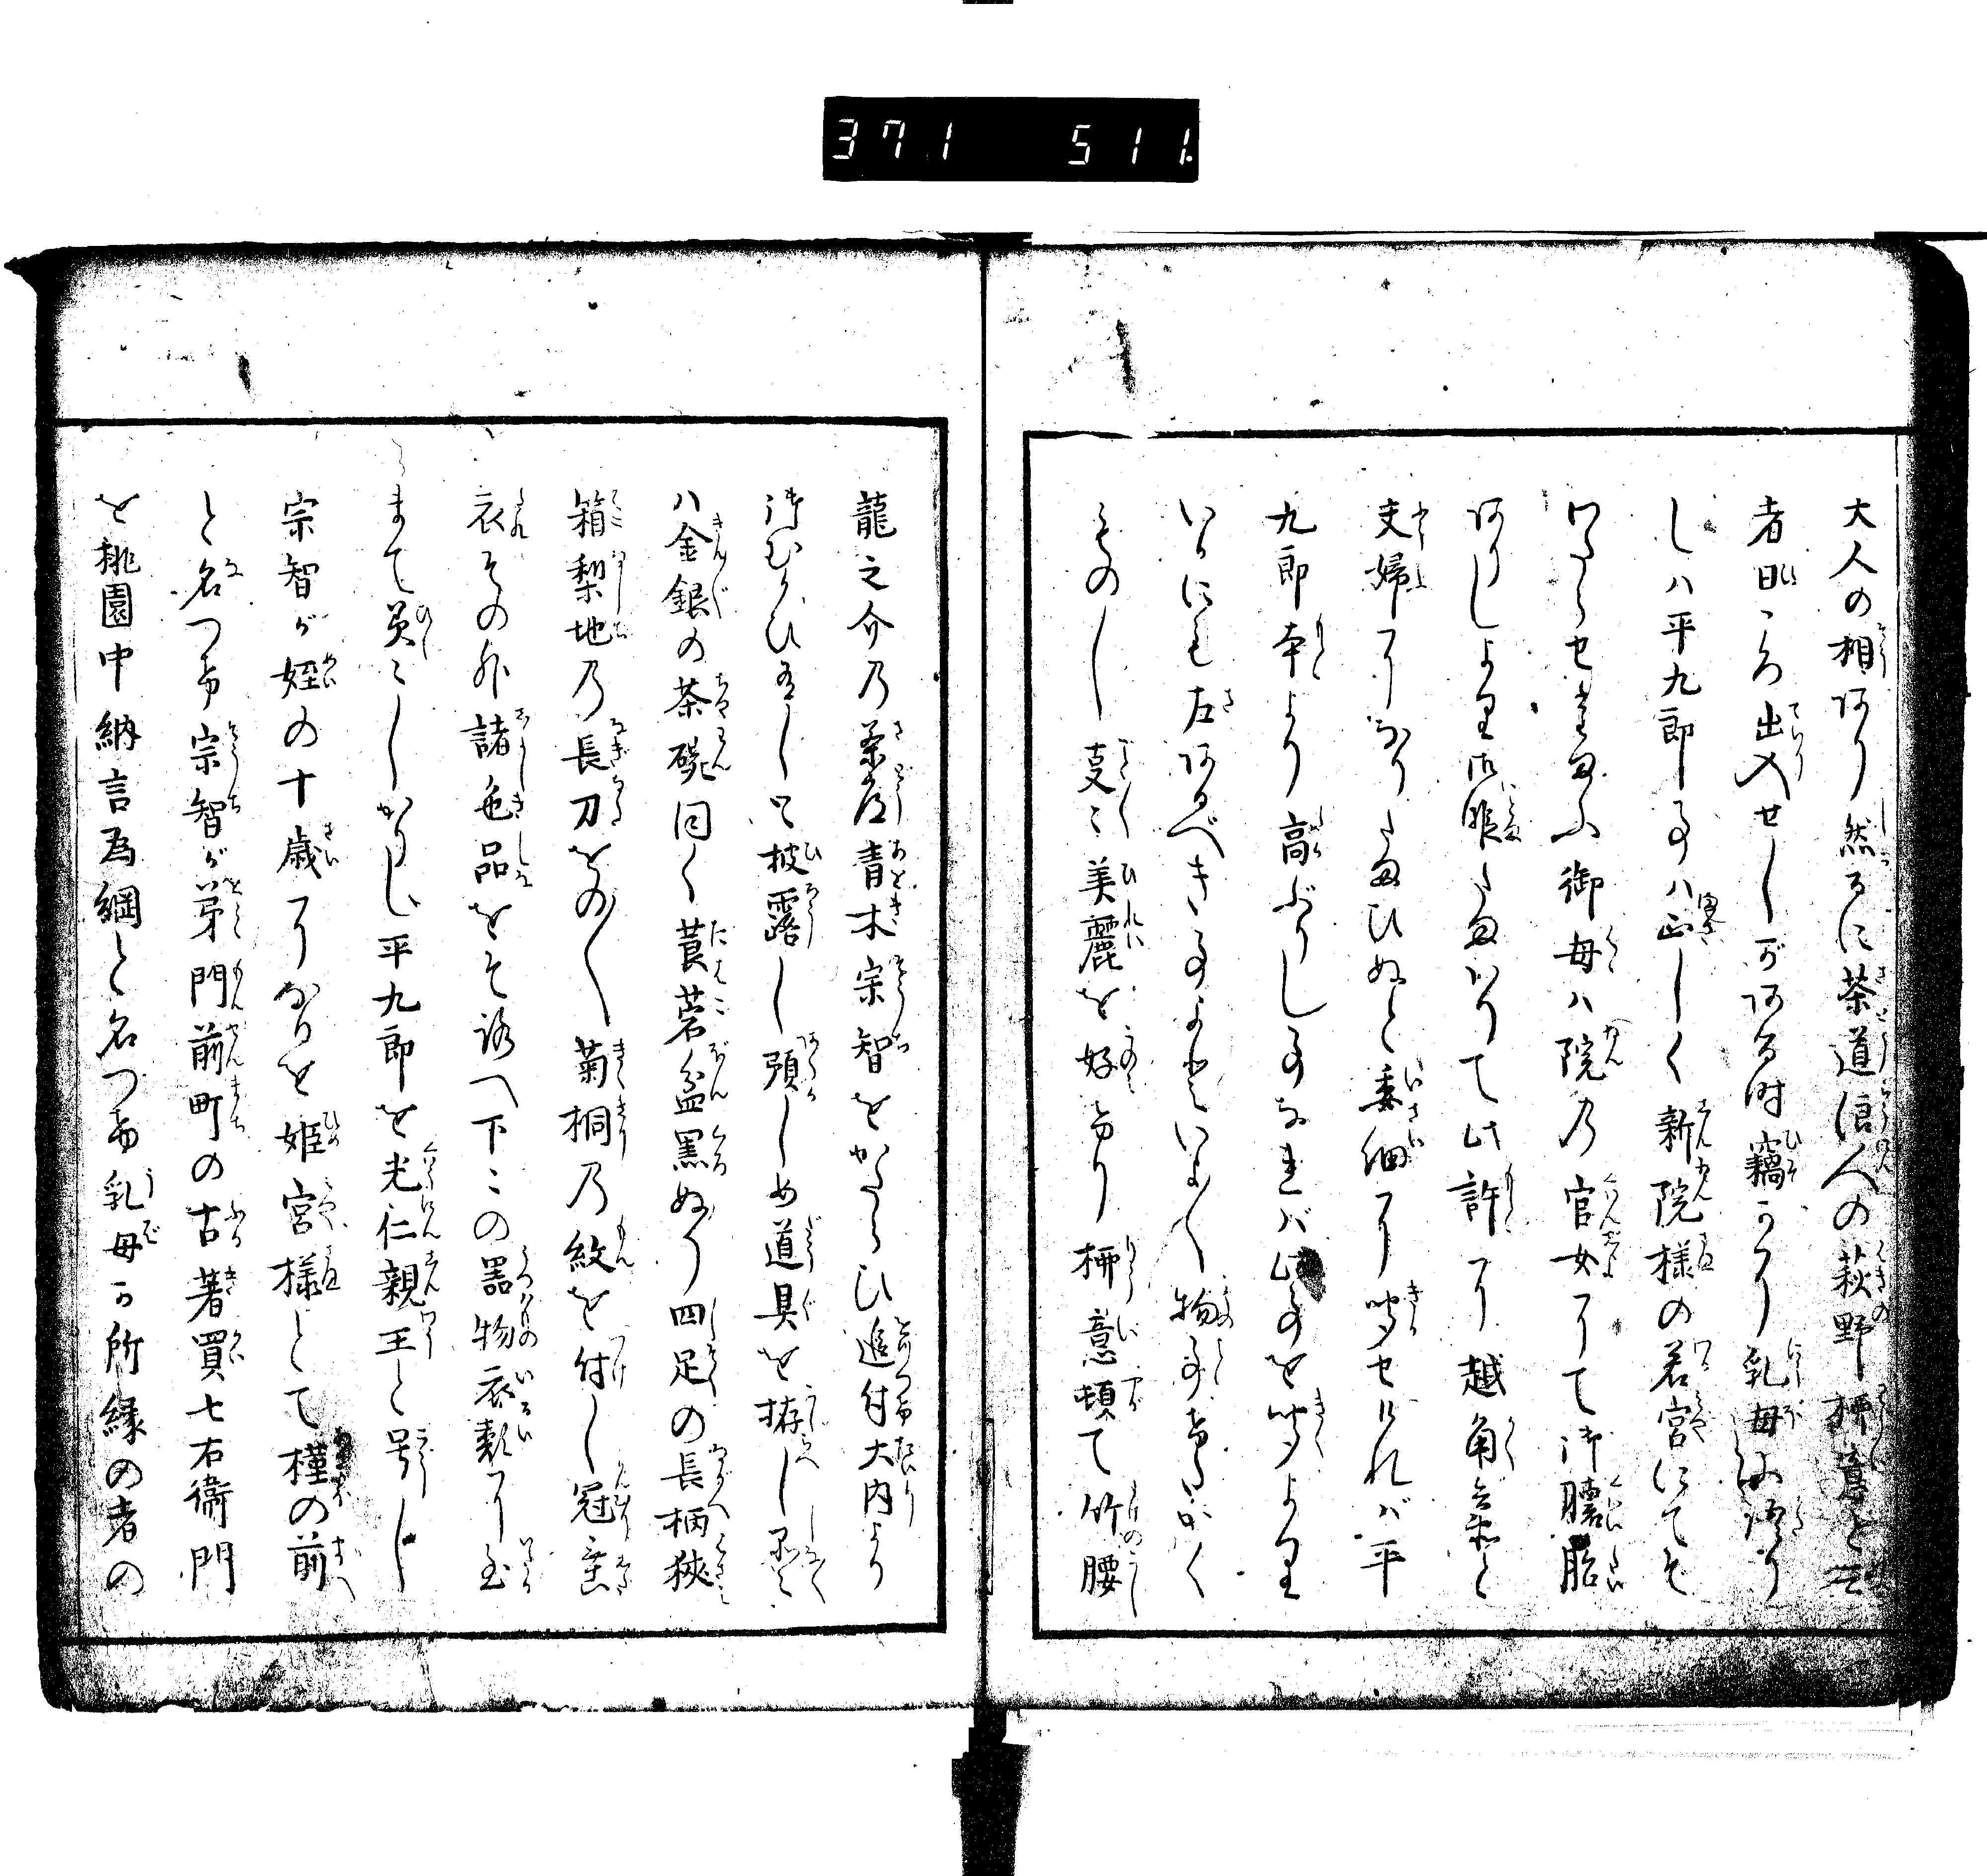 371 511.
大人の相あり然るに茶道浪人の萩野柳意と云
者日ころ出入せしがある時竊かに乳母に語り
しハ平九郎事ハ正しく新院様の若宮にてそ
わたらせ給ふ御母ハ院の官女にて御懐胎
ありしより御暇たまわりて此許に越角兵衛と
夫婦になりたまひぬと委細に聞せければ平
九郎本より高ぶりし事なれば此事を聞より
いかにも左あるべき事よといよ〱物事けたかく
ものし支〻美麗を好けり柳意頓て竹腰
龍之介乃茶道青木宗智をかたらひ追付大内より
御むかひ有しと披露し預しめ道具を拵し悉く
ハ金銀の茶碗同く莨菪盆黒ぬり四足の長柄狹
箱梨地乃長刀をの〱菊桐乃紋を付し冠童
衣その外諸色品をそ添へ下〻の器物衣類に至
まて美〻しかりし平九郎を光仁親王と号し
宗智が姪の十歳になりを姫宮様とて槿の前
と名つけ宗智が弟門前町の古著買七右衛門
を桃園中納言為綱と名つけ乳母の所縁の者の